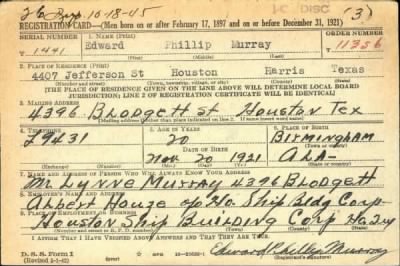 10-18-45
REGISTRATION CARD—(Men born on or after February 17, 1897 and on or before December 31, 1921)
SERIAL NUMBER 1. NAME (Print) ORDER NUMBER
1441 Edward Phillip Murray 11256
2. PLACE OF RESIDENCE (Print)
4407 Jefferson St Houston Harris Texas
(Town, township, village, or city) (County) (State)
[THE PLACE OF RESIDENCE GIVEN ON THE LINE ABOVE WILL DETERMINE LOCAL BOARD
JURISDICTION; LINE 2 OF REGISTRATION CERTIFICATE WILL BE IDENTICAL]
3. MAILING ADDRESS
4396 Blodgett St Houston Tex
[Mailing address if other than place indicated on line 2. If same insert word same]
4. TELEPHONE 5. AGE IN YEARS 6. PLACE OF BIRTH
L9431 20 Birmingham
DATE OF BIRTH (Town or county)
Nov 20 1921 Ala-
(Exchange) (Number) (Mo.) (Day) (Yr.) (State or country)
7. NAME AND ADDRESS OF PERSON WHO WILL ALWAYS KNOW YOUR ADDRESS
Mr Lynne Murray 4396 Blodgett
8. EMPLOYER'S NAME AND ADDRESS
Albert House Ship Bldg Corp
9. PLACE OF EMPLOYMENT OR BUSINESS
Houston Ship Building Corp
(Number and street or R. F. D. number) (Town) (County) (State)
I AFFIRM THAT I HAVE VERIFIED ABOVE ANSWERS AND THAT THEY ARE TRUE.
D. S. S. Form 1 Edward Phillip Murray
(Revised 1-1-42) (over) (Registrant's signature)